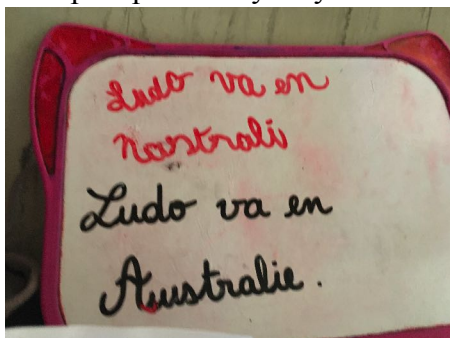 Ludo va en
nostrali
Ludo va en
Australie.